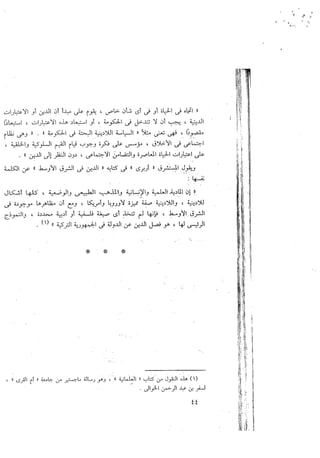 « اتجاه فى الحياة أو فى أى شأن خاص ، يقوم على مبدأ أن الدين أو الاعتبارات
الدينية ، يجب أن لا تتدخل فى الحكومة ، أو استبعاد هذه الاعتبارات ، استبعادًا
مقصودًا ، فهى تعنى مثلاً « السياسة اللادينية البحتة فى الحكومة » . « وهى نظام
اجتماعى فى الأخلاق ، مؤسس على فكرة وجوب قيام القيم السلوكية والخلقية ،
على اعتبارات الحياة المعاصرة والتضامن الاجتماعى ، دون النظر إلى الدين » .
ويقول المستشرق « أربرى » فى كتابه « الدين فى الشرق الأوسط » عن الكلمة
نفسها :
« إن المادية العلمية والإنسانية والمذهب الطبيعى والوضعية ، كلها أشكال
للادينية ، واللادينية صفة مميزة لأوروبا وأمريكا ، ومع أن مظاهرها موجودة فى
الشرق الأوسط ، فإنها لم تتخذ أى صيغة فلسفية أو أدبية محددة ، والنموذج
الرئيسى لها ، هو فصل الدين عن الدولة فى الجمهورية التركية » (١) .
* * *
(١) هذه النقول من كتاب « العلمانية » ، وهو رسالة ماجستير من جامعة « أم القرى » ،
لسفر بن عبد الرحمن الحوالى .
٤٤